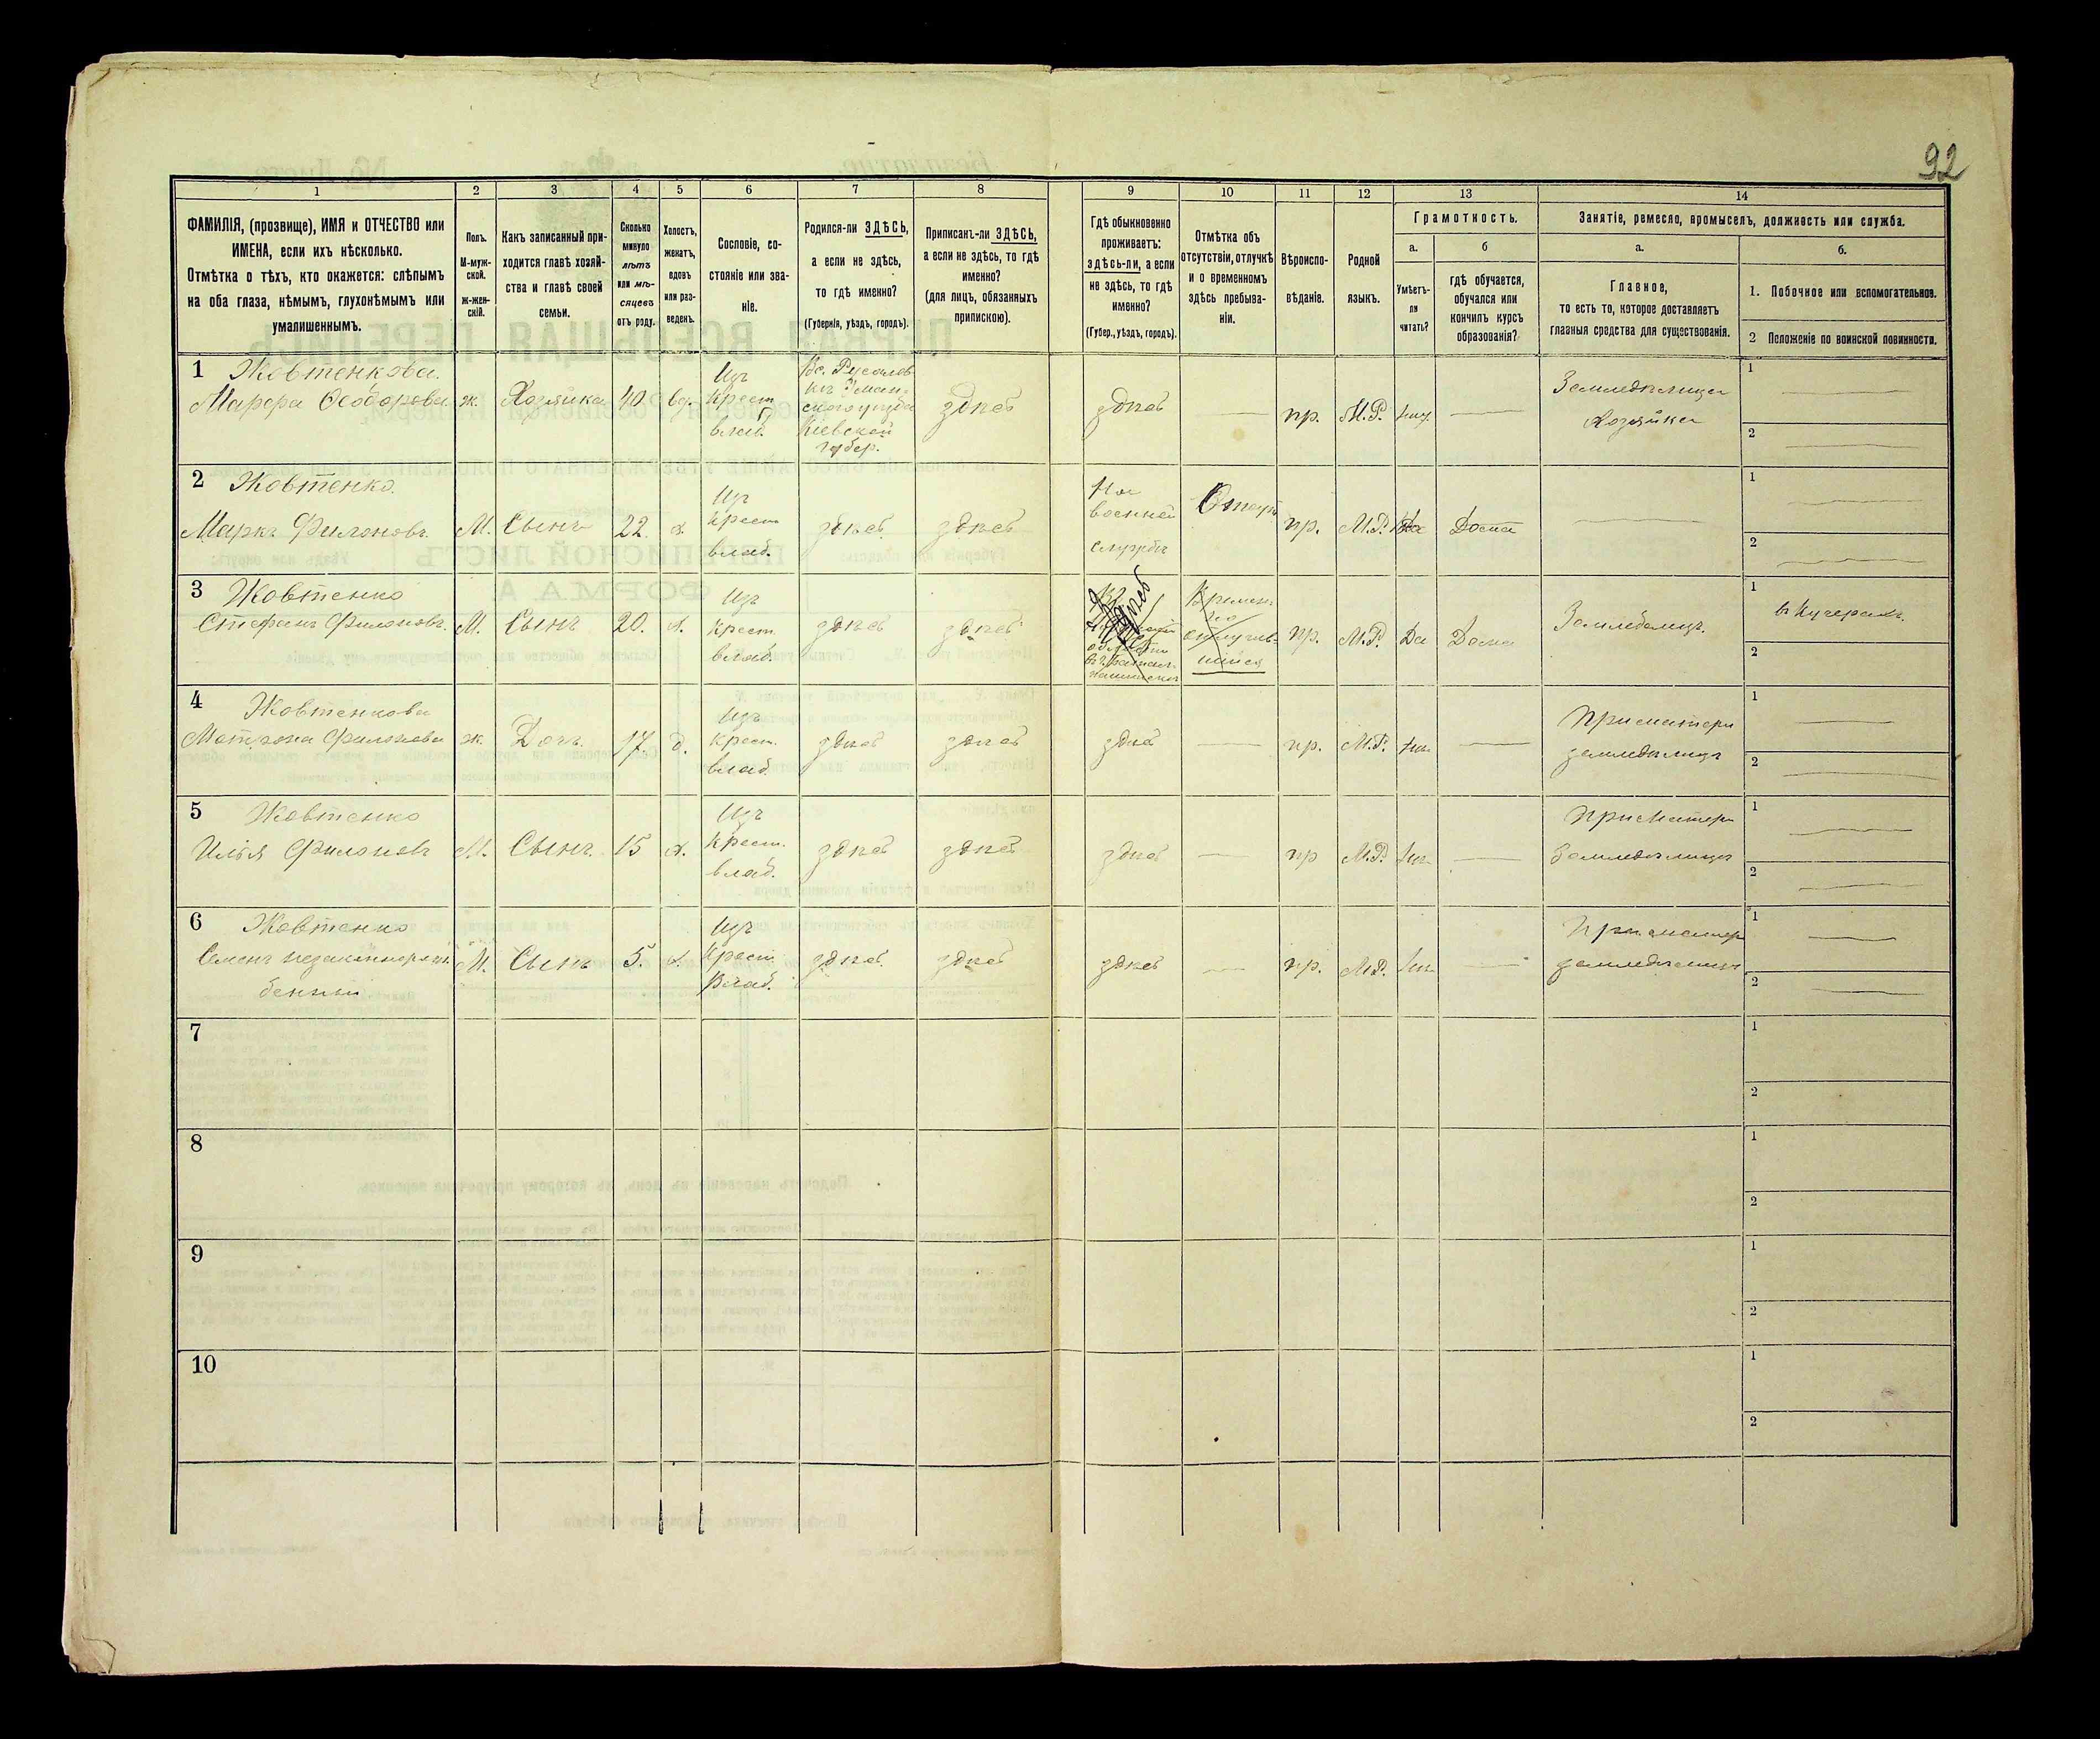 92
1
2
3
4
5
6
7
8
9
10
11
12
13
14
ФАМИЛІЯ, (прозвище), ИМЯ и ОТЧЕСТВО или
ИМЕНА, если ихъ нѣсколько.
Отмѣтка о тѣхъ, кто окажется: слѣпымъ
на оба глаза, нѣмымъ, глухонѣмымъ или
умалишеннымъ.
Полъ.
М-муж-
ской.
ж-жен-
скій.
Какъ записанный при-
ходится главѣ хозяй-
ства и главѣ своей
семьи.
Сколько
минуло
лѣтъ
или мѣ-
сяцевъ
отъ роду.
Холостъ,
женатъ,
вдовъ
или раз-
веденъ.
Сословіе, со-
стояніе или зва-
ніе.
Родился-ли ЗДѢСЬ,
а если не здѣсь,
то гдѣ именно?
(Губернія, уѣздъ, городъ).
Приписанъ-ли ЗДѢСЬ,
а если не здѣсь, то гдѣ
именно?
(для лицъ, обязанныхъ
припискою).
Гдѣ обыкновенно
проживаетъ:
здѣсь-ли, а если
не здѣсь, то гдѣ
именно?
(Губер., уѣздъ, городъ).
Отмѣтка объ
отсутствіи, отлучкѣ
и о временномъ
здѣсь пребыва-
ніи.
Вѣроиспо-
вѣданіе.
Родной
языкъ.
Грамотность.
а.
б
Умѣетъ-
ли
читать?
гдѣ обучается,
обучался или
кончилъ курсъ
образованія?
Занятіе, ремесло, промыселъ, должность или служба.
а.
б.
Главное,
то есть то, которое доставляетъ
главныя средства для существованія.
1. Побочное или вспомогательное.
2 Положеніе по воинской повинности.
1 Жовтенкова.
Марфа Ѳеодорова
ж.
Хозяйка
40.
вд.
Изъ
крест.
влад.
Кіевской
губер.
здѣсь
здѣсь
пр.
М.Р.
Земледѣлица
Хозяйка
1
2
2 Жовтенко.
Маркъ Филоновъ.
М.
Сынъ
22.
х.
Изъ
крест
влад.
здѣсь
здѣсь
На
военной
службѣ
пр.
М.Р.
Да
Дома
1
2
3 Жовтенко
Стефанъ Филоновъ.
М.
Сынъ
20.
х.
Изъ
крест.
влад.
здѣсь
здѣсь
Времен-
но
отлучив-
шійся
пр.
М.Р.
Да
Дома
Земледѣлецъ.
1 въ Кучерахъ.
2
4 Жовтенкова
Матрона Филонова
ж.
Дочь.
17.
д.
Изъ
крест.
влад.
здѣсь
здѣсь
здѣсь
пр.
М.Р.
При матери
1
2
5 Жовтенко
Илья Филоновъ
М.
Сынъ.
15
х.
Изъ
крест.
влад.
здѣсь
здѣсь
здѣсь
пр
М.Р.
При матери
1
2
6 Жовтенко
Семенъ незаконнорож
денный
М.
Сынъ
5.
х.
Изъ
крест.
Влад.
здѣсь
здѣсь
здѣсь
пр.
М.Р.
При матер
1
2
7
1
2
8
1
2
9
1
2
10
1
2